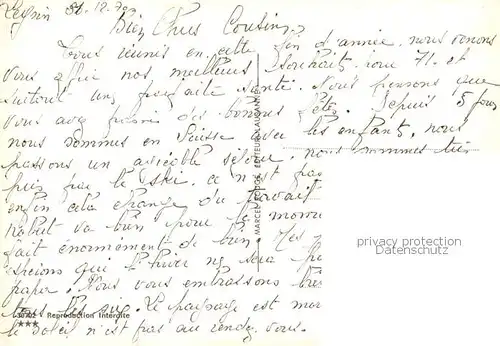 Leysin 31.12.70
Bien Chers Cousins
Tous réunis en cette fin d'année, nous venons
vous offrir nos meilleurs souhaits pour 71. et
surtout une parfaite santé. Nous pensons que
vous avez passé de bonnes fêtes. Depuis 5 jours
nous sommes en Suisse avec les enfants, nous
passons un agréable séjour. nous sommes très
pris par le ski, ce n'est pas
enfin cela change du travail
Robert va bien pour le
fait énormément de bien. Mes
que l'hiver ne sera
papa. Nous vous embrassons
tous les six. Le paysage est
le soleil n'est pas au rendez-vous.
MARCEL EDITEUR LAUSANNE
privacy protection
Datenschutz
Reproduction Interdite
***